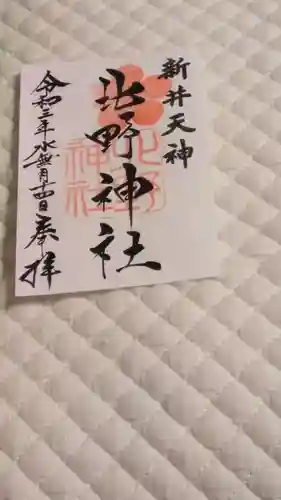 新井天神
北野神社
北野
神社
令和三年水無月十四日
奉拝